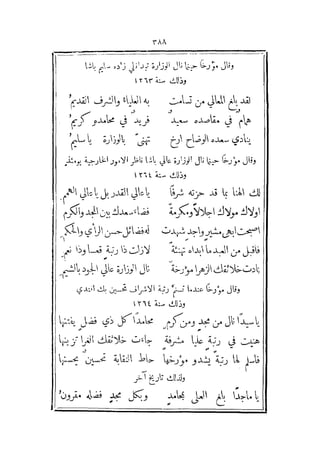 ٣٨٨
وقال مؤرخا حينما نال الوزارة تپدلنلي زاده سليم باشا
وذلك سنة ١٢٦٣
لقد بلغ المعالي من تسامت به العلياء والشرف القديم
همام في مقاصده سعيد فريد في محامده كريم
ينادي سعده الوضاح ارخ تهنى بالوزارة يا سليم
وقال مؤرخا حينما نال الوزارة عالي باشا ناظر الامور الخارجية يومئذ
وذلك سنة ١٢٦٤
لك الهنا بما قد حزته شرفا يا عالي القدر بل يا عالي الهمم
اولاك مولاك اجلالا ومكرمة فضاء سعدك بين المجد والكرم
اصبحت ابهى مشير واجد شهدت له فضائل حسن الرأي والحكم
فاقبل من العبد ما ابداه تهنئة لازلت ذا رتبة قعسا وذا نعم
نادت خلائقك الزهرا مؤرخة نال الوزارة عالي الجود بالشيم
وقال مؤرخا عندما تسنم رتبة الاشراف تحسين بك افندي
وذلك سنة ١٢٦٤
يا سيدا نال من مجد ومن كرم محامدا كل ذي فضل يفتنها
هنيت في رتبة عليا مشرفة جاءت خلائقك الغرا تزينها
فاسلم لها رتبة يشدو مؤرخها حاط النقابة تحسين يحسنها
ولذلك تاريخ آخر
يا ماجدا بلغ العلى بمحامد وبكل مجد فضله مقرون